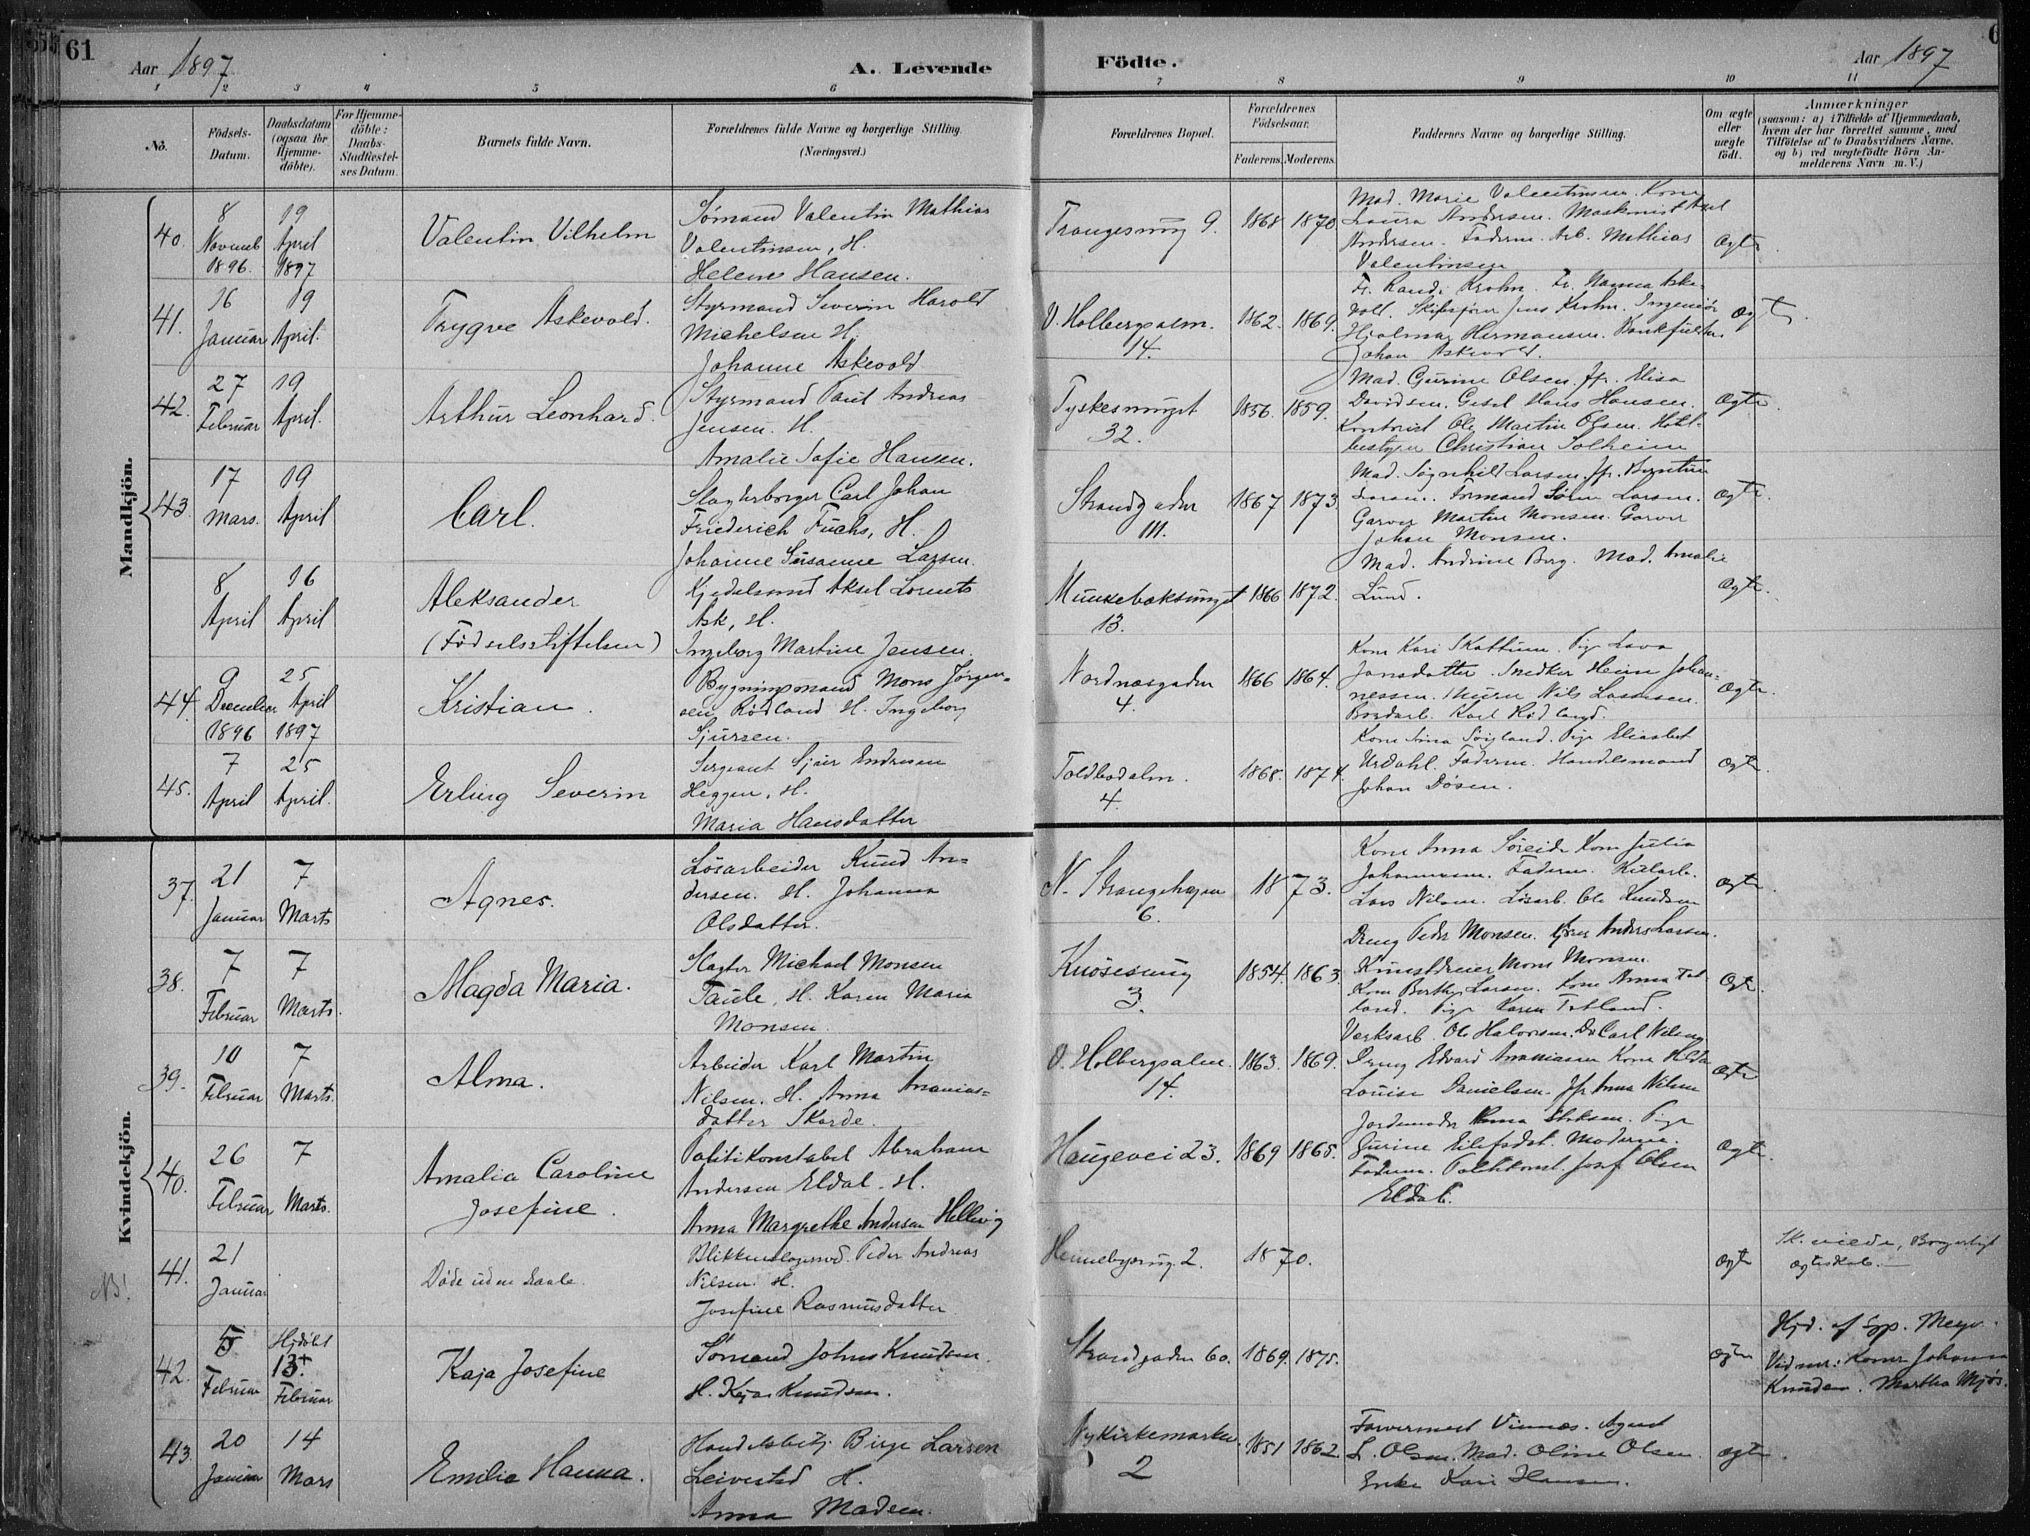 61
Aar 1897
A. Levende
Födte.
Aar 1897
6
1 2 3 4 5 6 7 8 9 10 11
No.
Födsels-
Datum.
Daabsdatum
(ogsaa for
Hjemme-
döbte).
For Hjemme-
döbte:
Daabs-
Stadfæstel-
ses Datum.
Barnets fulde Navn.
Forældrenes fulde Navne og borgerlige Stilling.
(Næringsvei.)
Forældrenes Bopæl.
Forældrenes
Födselsaar.
Faderens. Moderens.
Faddernes Navne og borgerlige Stilling.
Om ægte
eller
uægte
födt.
Anmærkninger
(saasom: a) i Tilfælde af Hjemmedaab,
hvem der har forrettet samme, med
Tilföielse af to Daabsvidners Navne,
og b) ved uægtefödte Börn An-
melderens Navn m. V.)
Mandkjön.
40. 8 Novemb 1896. 19 April 1897
Valentin Vilhelm
Sömand Valentin Mathias
Valentinsen, H.
Helene Hansen.
Trangesmug 9. 1868 1870
Mad. Marie Valentinsen. Kone
Laura Andersen. Maskinist Axel
Andersen. Faderen. Arb. Mathias
Valentinsen
Ægte.
41. 16 Januar 19 April.
Trygve Askevold.
Styrmand Severin Harold
Michelsen H.
Johanne Askevold
V. Holbergsalm. 14. 1862. 1869.
Fr. Randi Krohn. Fr. Nanna Aske-
vold. Skibsförer Jens Krohn. Ingeniör
Hjalmar Hermansen. Bankfuldm.
Johan Askevold.
Ægte
42. 27 Februar 19 April.
Arthur Leonhard.
Styrmand Paul Andreas
Jensen. H.
Amalie Sofie Hansen.
Tyskesmuget 32. 1856. 1859.
Mad. Gurine Olsen. Jfr. Elisa
Davidsen. Gesel Hans Hansen.
Kontorist Ole Martin Olsen. Hotel-
bestyrer Christian Solheim
Ægte.
43. 17 Mars. 19 April
Carl.
Slagterborger Carl Johan
Friederich Fuchs, H.
Johanne Susanne Larsen.
Strandgaden 111. 1867 1873.
Larsen. Formand Sören Larsen.
Garver Martin Monsen. Garver
Johan Monsen.
Ægte.
8 April 16 April
Aleksander
(Födselsstiftelsen)
Kjedelsmed Aksel Lorents
Ask, H.
Ingeborg Martine Jensen.
Munkebæksmuget 13. 1866 1872.
Mad. Andrine Berg. Mad. Amalie
Lund.
Ægte.
44. 9 December 1896 25 April 1897
Kristian.
Bygningsmand Mons Jörgen-
sen Rödland H. Ingeborg
Sjursen.
Nordnæsgaden 4. 1866 1864.
Kone Kari Skattum. Pige Lava
Jonsdatter. Snedker Heine Johan-
nessen. Murer Nils Lassesen.
Bordarb. Karl Rödland.
Ægte.
45. 7 April 25 April.
Erling Severin
Sergeant Sjur Endresen
Heggen, H.
Maria Hansdatter
Toldbodalm. 4. 1868. 1874.
Urdahl. Faderen. Handelsmand
Johan Dösen.
Ægte.
Kvindekjön.
37. 21 Januar 7 Marts
Agnes.
Lösarbeider Knud An-
dersen. H. Johanna
Olsdatter.
N. Strangehagen 6. 1873.
Kone Anna Söreide Kone Julia
Johannesen. Faderen. Kularb.
Lars Nilsen. Lösarb. Ole Knudsen
Ægte.
38. 7 Februar 7 Marts.
Magda Maria.
Slagter Michael Monsen
Taule, H. Karen Maria
Monsen.
Knösesmug 3. 1854. 1863.
Dreng Peder Monsen. Anders Larsen.
Kunstdreier Mons Monsen.
Kone Berthe Larsen. Kone Anna Tot-
land. Pige Karen Totland.
Ægte.
39. 10 Februar 7 Marts.
Alma.
Arbeider Karl Martin
Nilsen. H. Anna Ananias-
datter Skorde.
V. Holbergsalm. 14. 1863. 1869.
Værksarb Ole Halvorsen. Do Carl Nilsen
Dreng Edvard Ananiasen Kone Hilda
Louise Danielsen. Jfr Anna Nilsen
Ægte
40. 26 Februar 7 Marts.
Amalia Caroline
Josefine.
Politikonstabel Abraham
Andersen Eldal. H.
Anna Margrethe Andersen Hellevig
Haugevei 23. 1869 1865.
Jordemoder Anna Eriksen. Pige
Gurine Eilefsdat. Moderen.
Faderen. Politikonst. Josef Olsen
Eldal.
Ægte.
NB!
41. 21 Januar
Döde uden Daab.
Blikkenslagersvd. Peder Andreas
Nilsen. H.
Josefine Rasmusdatter.
2. 1870.
Ægte
Borgerligt
ægteskab.
42. 5 Februar Hjdöbt 13. Februar
Kaja Josefine
Sömand Johns Knudsen.
H. Kaja Knudsen.
Strandgaden 60. 1869. 1875.
Ægte
Hjd. af Spp. Meyer.
Vidner: Koner Johanna
Knudsen. Martha Mjös.
43. 20 Januar 14 Mars
Emilie Hanna.
Handelsbetj. Birge Larsen
Leivestad H.
Anna Madsen.
Nykirkemarken. 2 1851 1862.
Farvermest Vinnæs. Agent
L. Olsen. Mad. Oline Olsen.
Enke Kari Hansen.
Ægte.